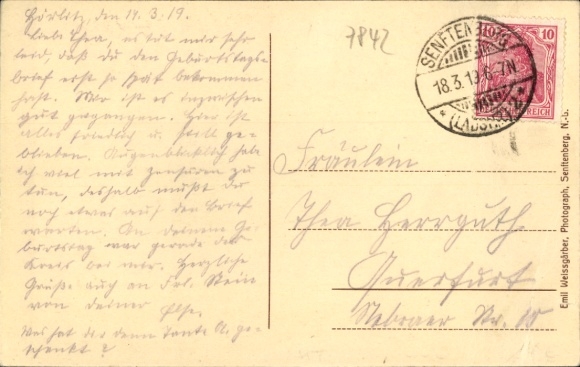 Görlitz, den 17.3.19.
Liebe Thea, es tut mir sehr
leid, daß du den Geburtstags-
brief erst so spät bekommen
hast. Mir ist es inzwischen
gut gegangen. Hier ist
alles friedlich u. still ge-
blieben. Augenblicklich hab
ich viel mit Zensuren zu
tun, deshalb mußt Du
noch etwas auf den Brief
warten. An deinem Ge-
burtstag war gerade der
Kreis bei mir. Herzliche
Grüße auch an Frl. Stein
von deiner
Else.
Was hat dir denn Tante A. ge-
schenkt?
7842
SENFTENBERG
18.3.19. 6-7N
* (LAUSITZ) 2 *
10
REICH
Fräulein
Thea Herrguth
Querfurt
Nebraer Str. 10
Emil Weissgärber, Photograph, Senftenberg, N.-L.